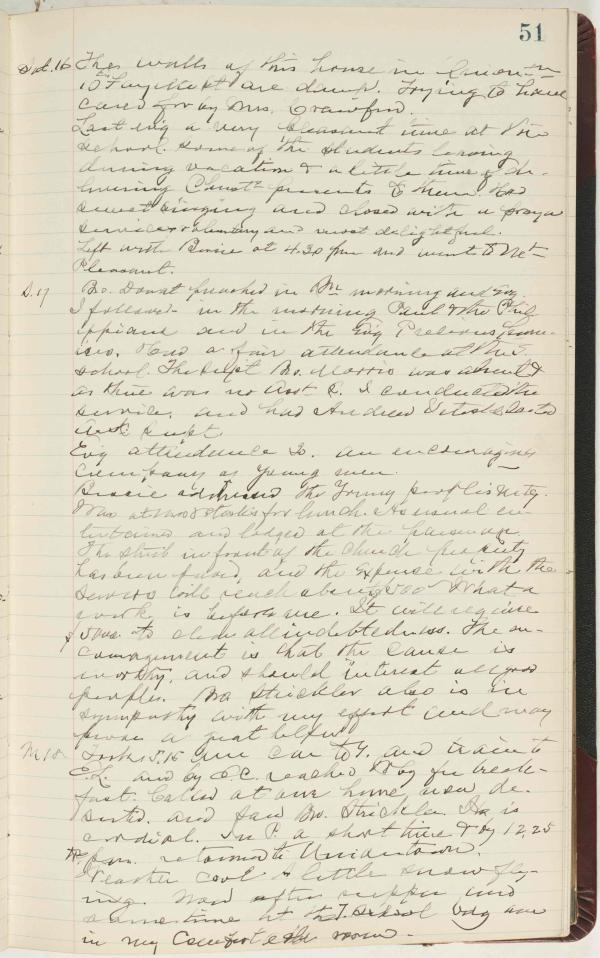 51
Sat. 16 The walls of this house in Union-tn
15 Fayette st are damp. Trying to have
cared for by Mrs. Crawford.
Last evg a very pleasant time at the
school. Some of the students leaving
during vacation & a little time of de-
livering Christs presents to them. Had
sweet singing and closed with a prayer
service voluntary and most delightful.
Left with Bessie at 4.30 pm and went to Mt
Pleasant.
S. 17 Bro. Donat preached in Bn morning and evg.
I followed in the morning Paul & the Phil-
ippians and in the Evg Precious
Had a fair attendance at the S.
School. The Supt Bro. Morris was absent &
as there was no Asst S. I conducted the
service, and had Andrew elected
Asst Supt.
Evg attendance an encouraging
company of young men.
Bessie addressed the Young peoples Mtg.
Was at for lunch. As usual en-
tertained and lodged at the parsonage.
The street in front of the church property
has been paved, and the expense with the
sewers will reach about What a
work is before me. It will require
to clear all indebtedness. The en-
couragement is that the cause is
worthy, and should interest all good
people. Bro Strickler also is in
sympathy with my effort and may
prove a great helper.
M 18 Took 5.15 am car to Y. and train to
E.L. and by P.C. reached by for break-
fast. Called at our home, now de-
serted, and saw Bro. Strickler. He is
cordial. In P. a short time & by 12.25
pm. returned to Uniontown.
Weather cool & little snow fly-
ing. Now after supper and
some time at the T. School bdg am
in my comfortable room.